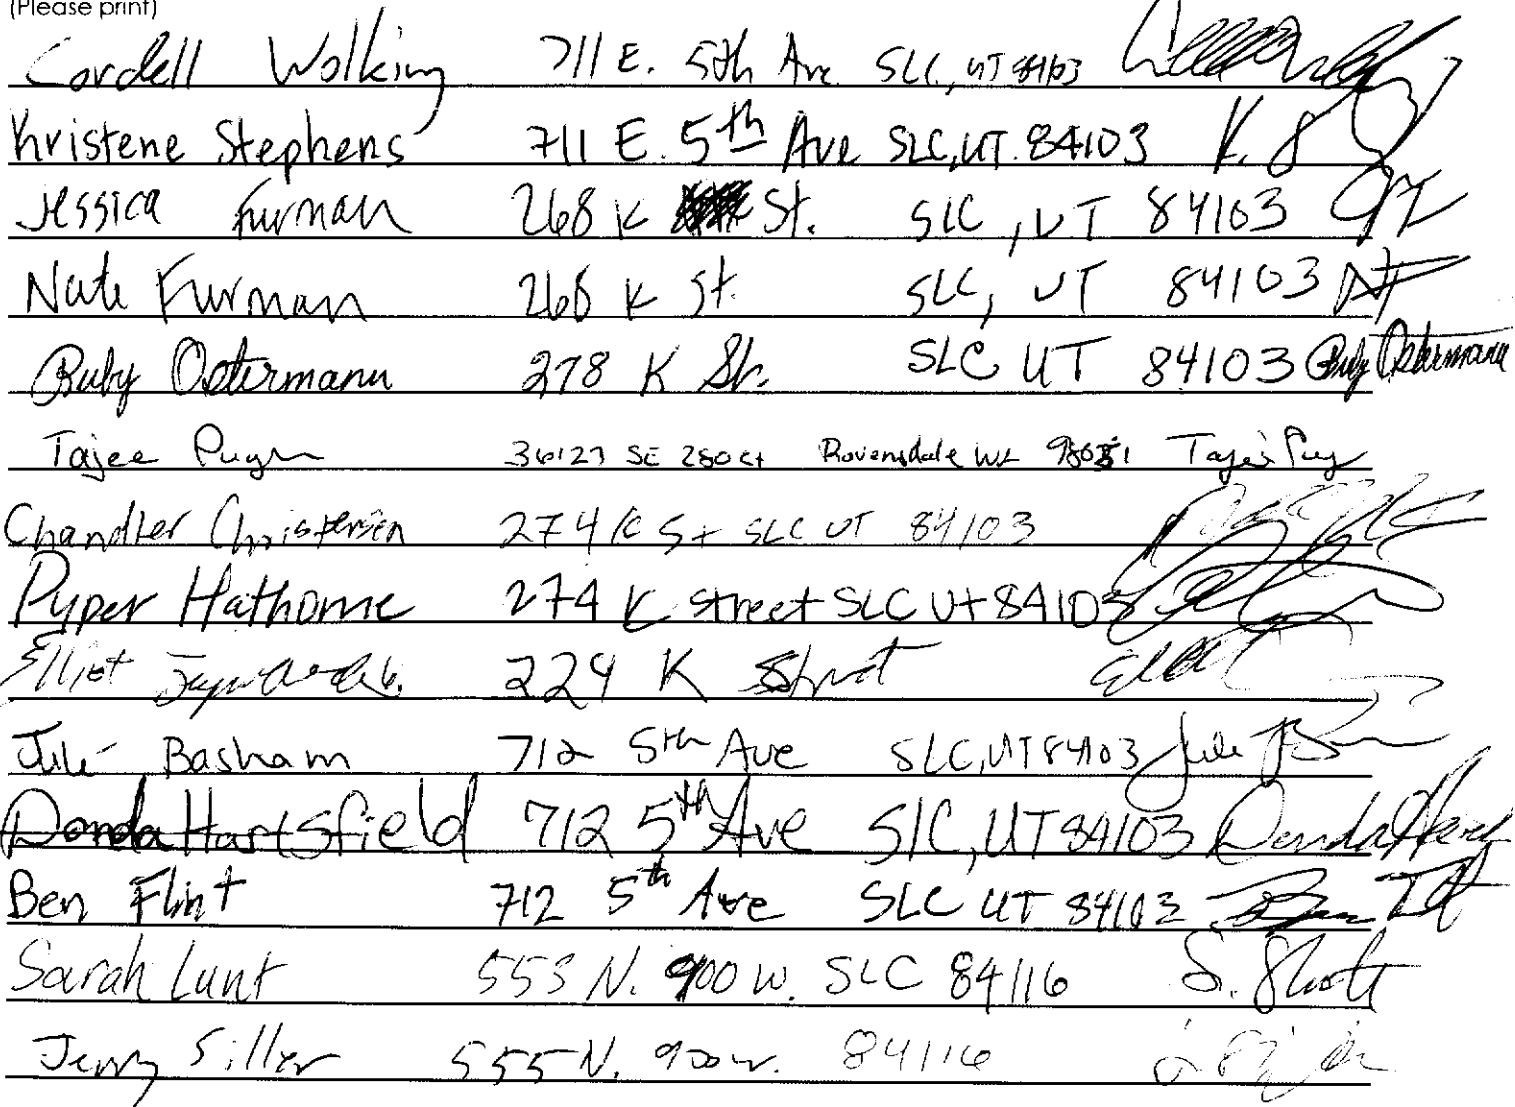 (Please print)
Cordell Wolking 711 E. 5th Ave SLC, UT 84103
Kristene Stephens 711 E. 5th Ave SLC, UT. 84103 K. S
Jessica Furman 268 K St. SLC, UT 84103 JF
Nate Furman 268 K St. SLC, UT 84103 NF
Ruby Ostermann 278 K St. SLC UT 84103 Ruby Ostermann
Tajee 36123 SE 280 Ct Ravensdale WA 98051
Chandler Christensen 274 K St SLC UT 84103
Pyper Hathorne 274 K street SLC Ut 84103
Elliot 224 K Street
Julie Basham 712 5th Ave SLC, UT 84103 Julie
Donda Hartsfield 712 5th Ave SLC, UT 84103 Donda
Ben Flint 712 5th Ave SLC UT 84103 Ben
Sarah Lunt 553 N. 900 W. SLC 84116
Jerry Siller 555 N. 900 W. 84116